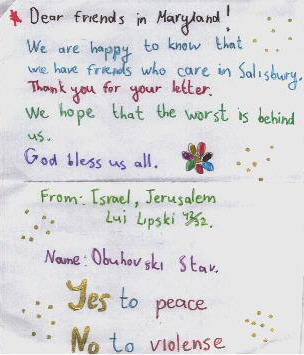 Dear friends in Maryland!
We are happy to know that
we have friends who care in Salisbury.
Thank you for your letter.
We hope that the worst is behind
us.
God bless us all.
From: Israel, Jerusalem
Lui Lipski 43/52.
Name: Obuhovski Stav.
Yes to peace
No to violense